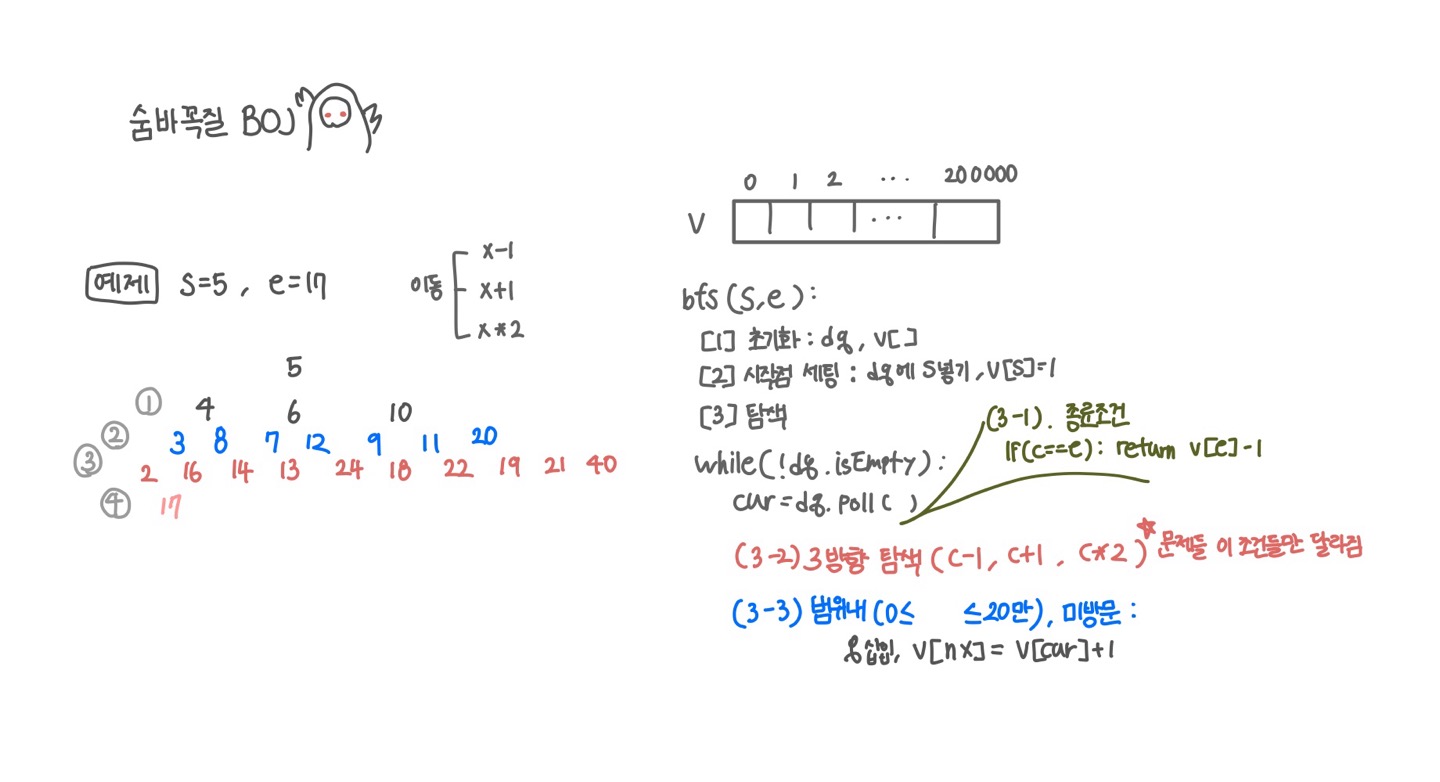 숨바꼭질 BOJ
예제 S=5, e=17
이동
x-1
x+1
x*2
5
① 4 6 10
② 3 8 7 12 9 11 20
③ 2 16 14 13 24 18 22 19 21 40
④ 17
0 1 2 ... 200000
V ...
bfs(S,e):
[1] 초기화: dq, V[]
[2] 시작점 세팅: dq에 S넣기, V[S]=1
[3] 탐색
while(!dq.isEmpty):
cur=dq.poll( )
(3-1). 종료조건
If(c==e): return v[e]-1
(3-2) 3방향 탐색 (C-1, C+1, C*2)
문제들 이 조건들만 달라짐
(3-3) 범위내 (0≤ ≤20만), 미방문:
q삽입, V[nx] = V[cur]+1